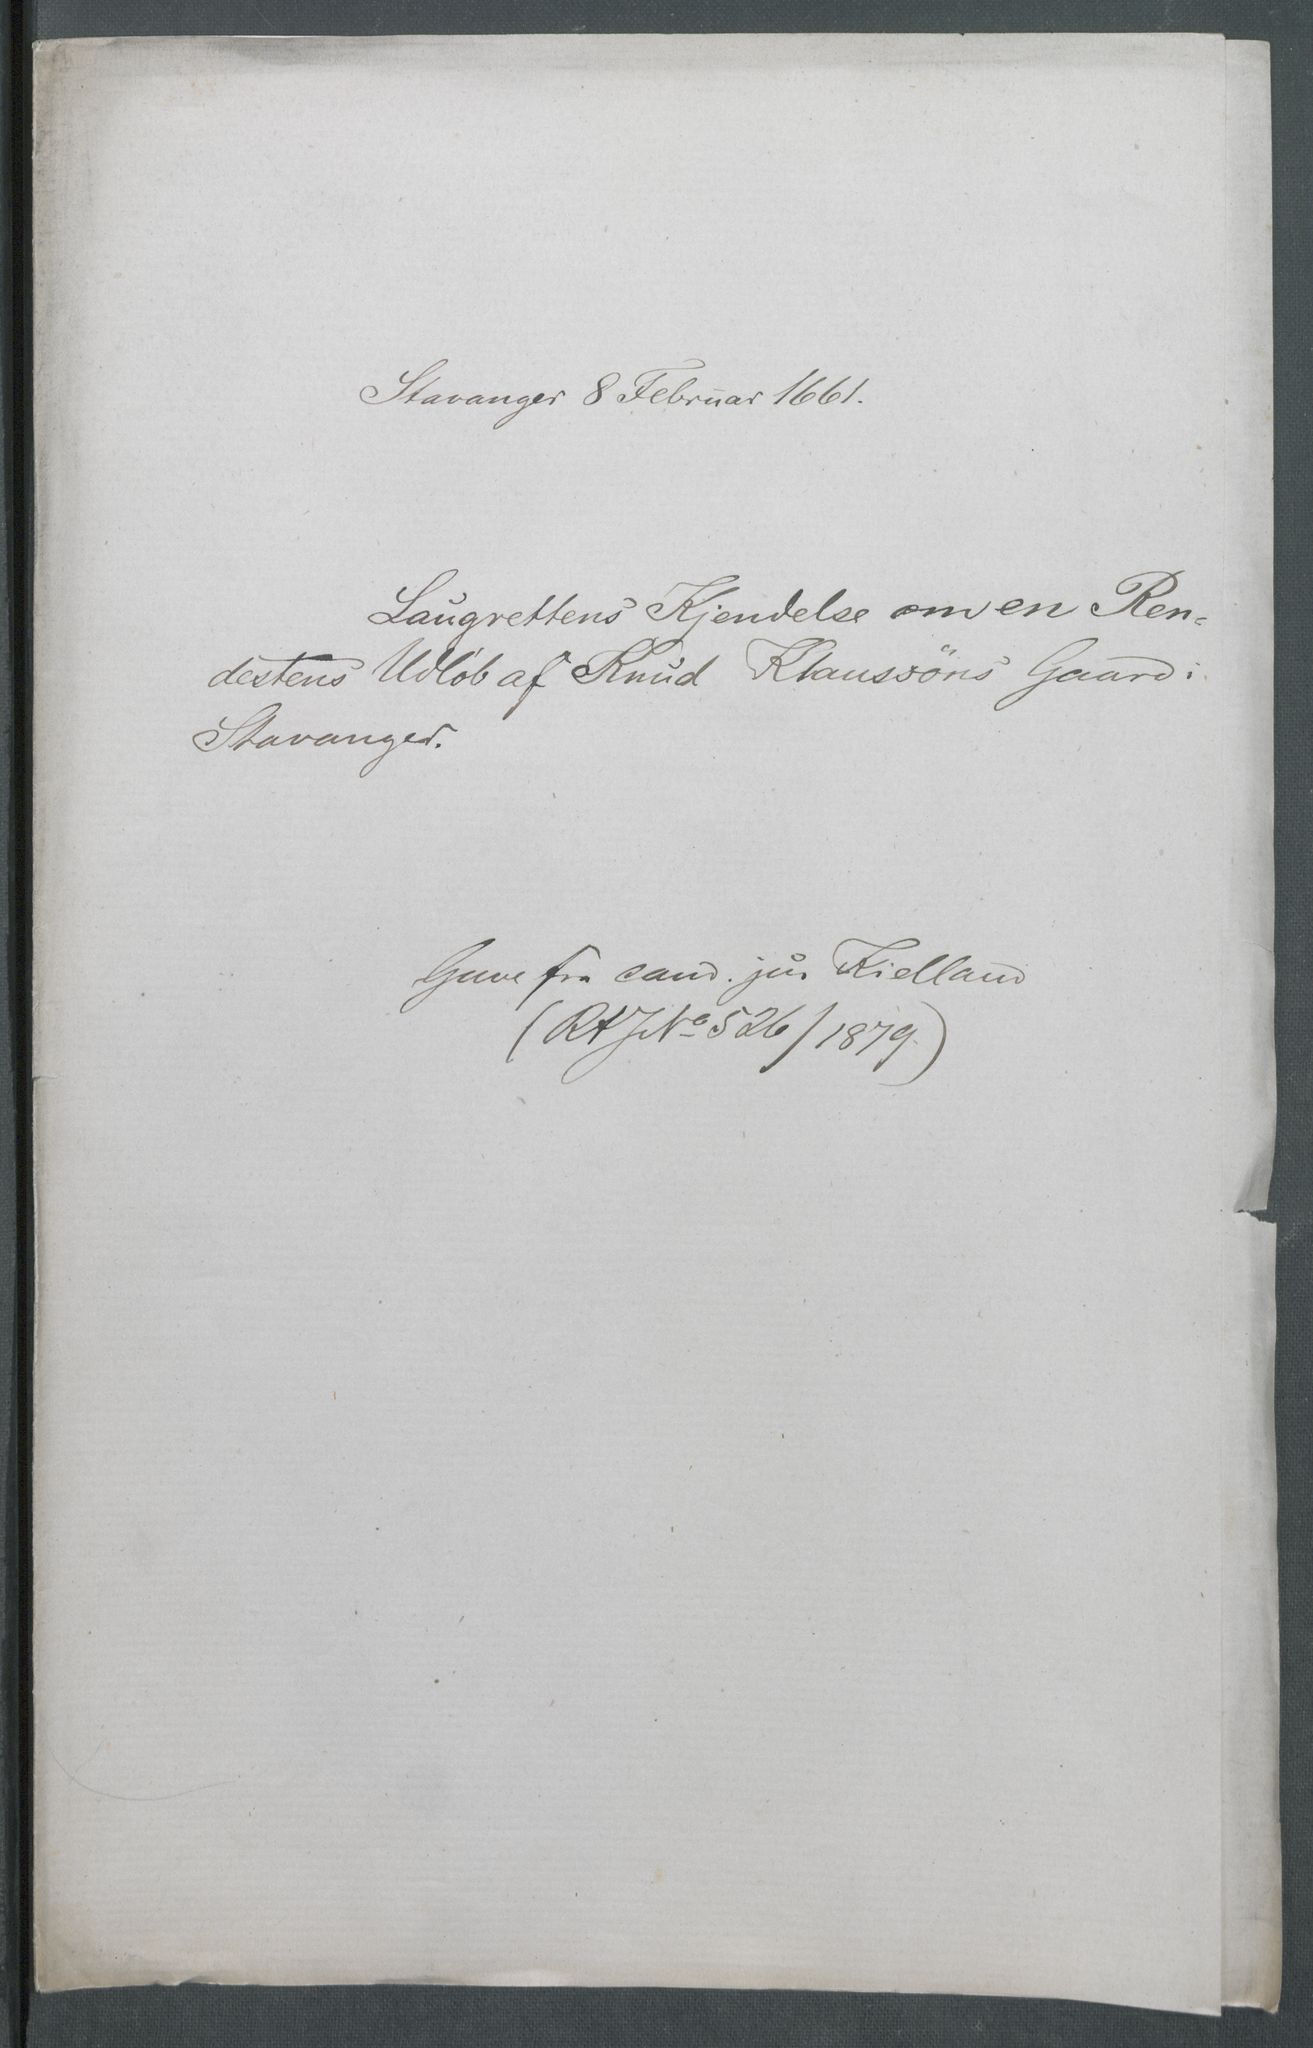 Stavanger 8 Februar 1661.
Laugrettens Kjendelse om en Ren-
destens Udløb af Knud Klaussöns Gaard i
Stavanger.
Gave fra cand. jur Kielland
(RA J No 526/1879)